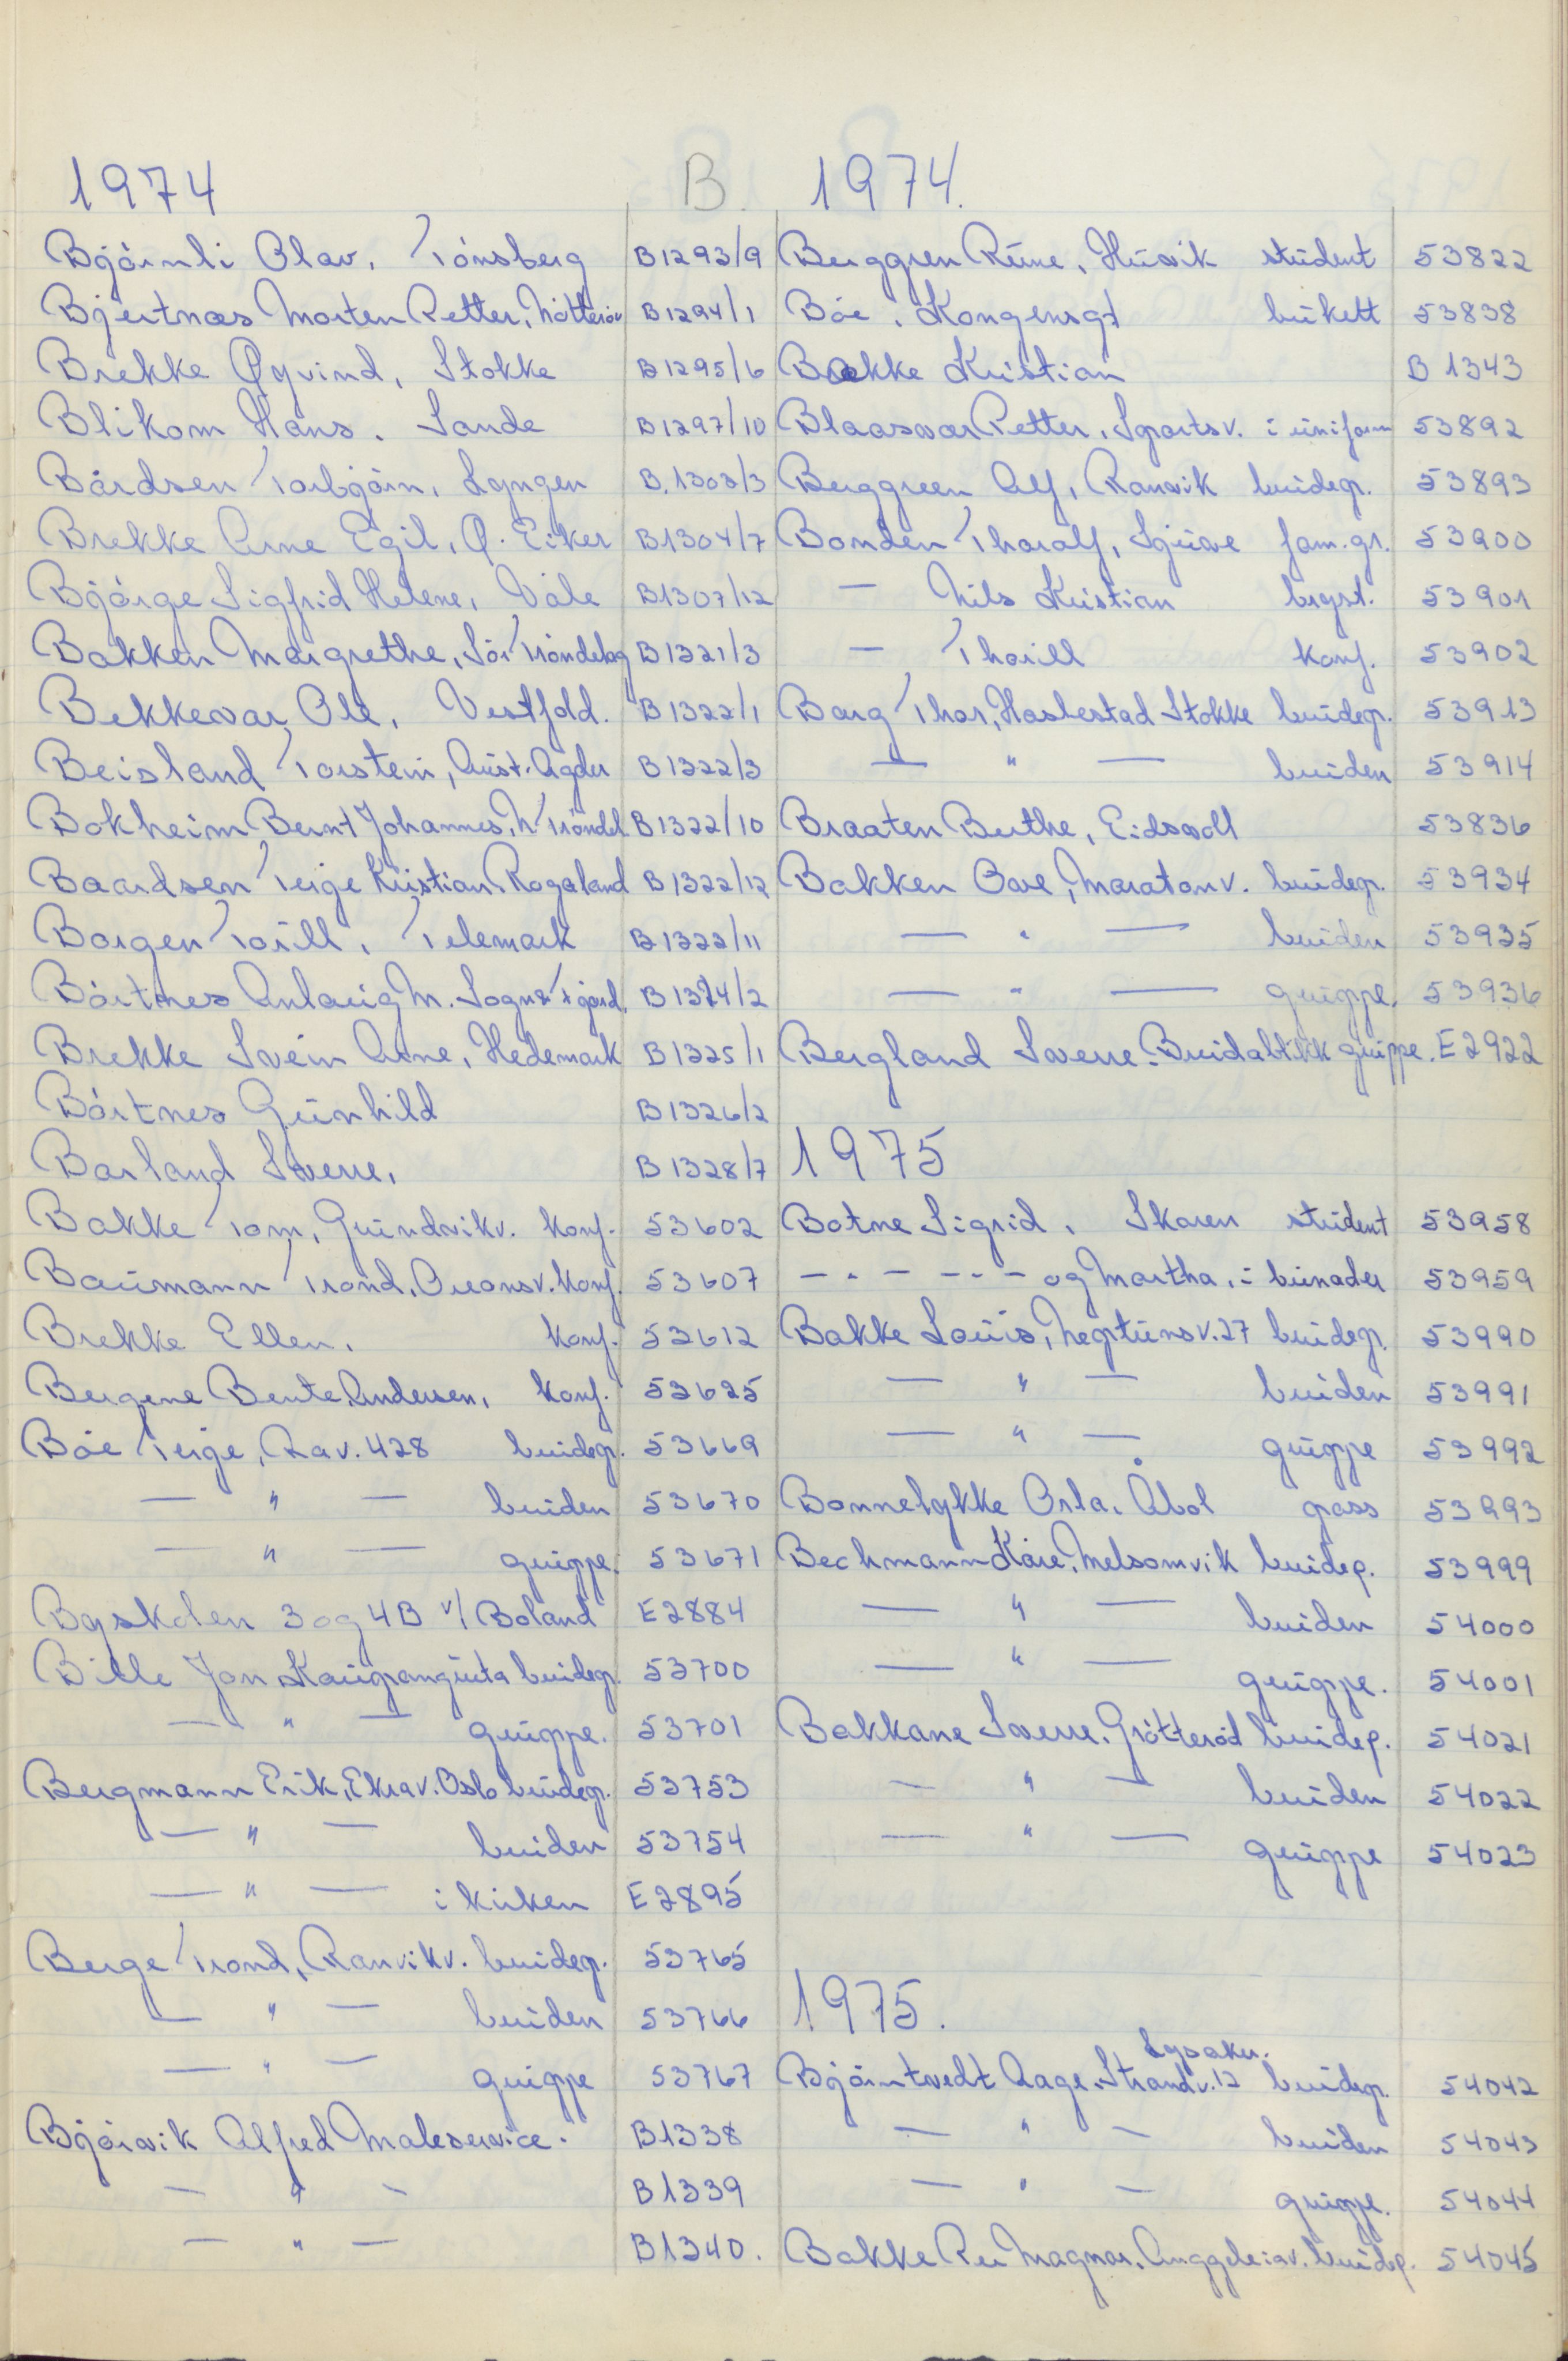 1974
B.
Bjørnli Olav, Tønsberg B1293/9
Bjertnæs Morten Petter, Nøtterøy B1294/1
Brekke Øyvind, Stokke B1295/6
Blikom Hans, Sande B1297/10
Bårdsen Torbjørn, Lyngen B.1303/3
Brekke Arne Egil, Ø. Eiker B1304/7
Bjørge Sigfrid Helene, Våle B1307/12
Bakken Margrethe, Sør Trøndelag B1321/3
Bekkevar Ole, Vestfold. B1322/1
Beisland Torstein, Aust-Agder B1322/3
Bokheim Bernt Johannes, N Trøndel. B1322/10
Baardsen Terje Kristian Rogaland B1322/12
Borgen Torill, Telemark B1323/11
Børtnes Anlaug M. Sogn & Fjord. B1324/2
Brekke Svein Arne, Hedemark B1325/1
Børtnes Gunhild B1326/2
Barland Sverre, B1328/7
Bakke Tom, Grindvikv. konf. 53602
Baumann Trond, Oreonsv. konf. 53607
Brekke Ellen, konf. 53612
Bergene Bente Andersen, konf. 53625
Bøe Terje, Ra v. 428 brudep. 53669
— " — bruden 53670
— " — gruppe. 53671
Byskolen 3 og 4B v/ Boland E2884
Bille Jon Kaupanggata brudep. 53700
— " — gruppe. 53701
Bergmann Erik, Ekrav. Oslo brudep. 53753
— " — bruden 53754
— " — i kirken E2895
Berge Trond, Ranvikv. brudep. 53765
— " — bruden 53766
— " — gruppe 53767
Bjørvik Alfred Maleservice. B1338
— " — B1339
— " — B1340.
1974.
Berggren Rune, Husvik student 53822
Bøe, Kongensgt bukett 53838
Bakke Kristian B 1343
Blaasvær Petter, Sportsv. i uniform 53892
Berggreen Alf, Ranvik brudep. 53893
Bonden Tharalf, Sjuve fam.gr. 53900
— Nils Kristian bryst. 53901
— Thorill konf. 53902
Borg Thor, Haslestad Stokke brudep. 53913
— " — bruden 53914
Braaten Berthe, Eidsvoll 53836
Bakken Ove, Maratonv. brudep. 53934
— " — bruden 53935
— " — gruppe. 53936
Bergland Sverre. Breidablikk gruppe. E2922
1975
Botne Sigrid, Skaren student 53958
— . — - - - og Martha, i bunader 53959
Bakke Louis, Neptunsv. 27 brudep. 53990
— " — bruden 53991
— " — gruppe 53992
Bonnelykke Orla, Åbol pass 53993
Bechmann Kåre, Melsomvik brudep. 53999
— " — bruden 54000
— " — gruppe. 54001
Bakkane Sverre, Grøtterød brudep. 54021
— " — bruden 54022
— " — gruppe 54023
1975.
Lysaker.
Bjørntvedt Aage, Strandv. 12 brudep. 54042
— " — bruden 54043
— " — gruppe. 54044
Bakke Per Magnar, brudep. 54045